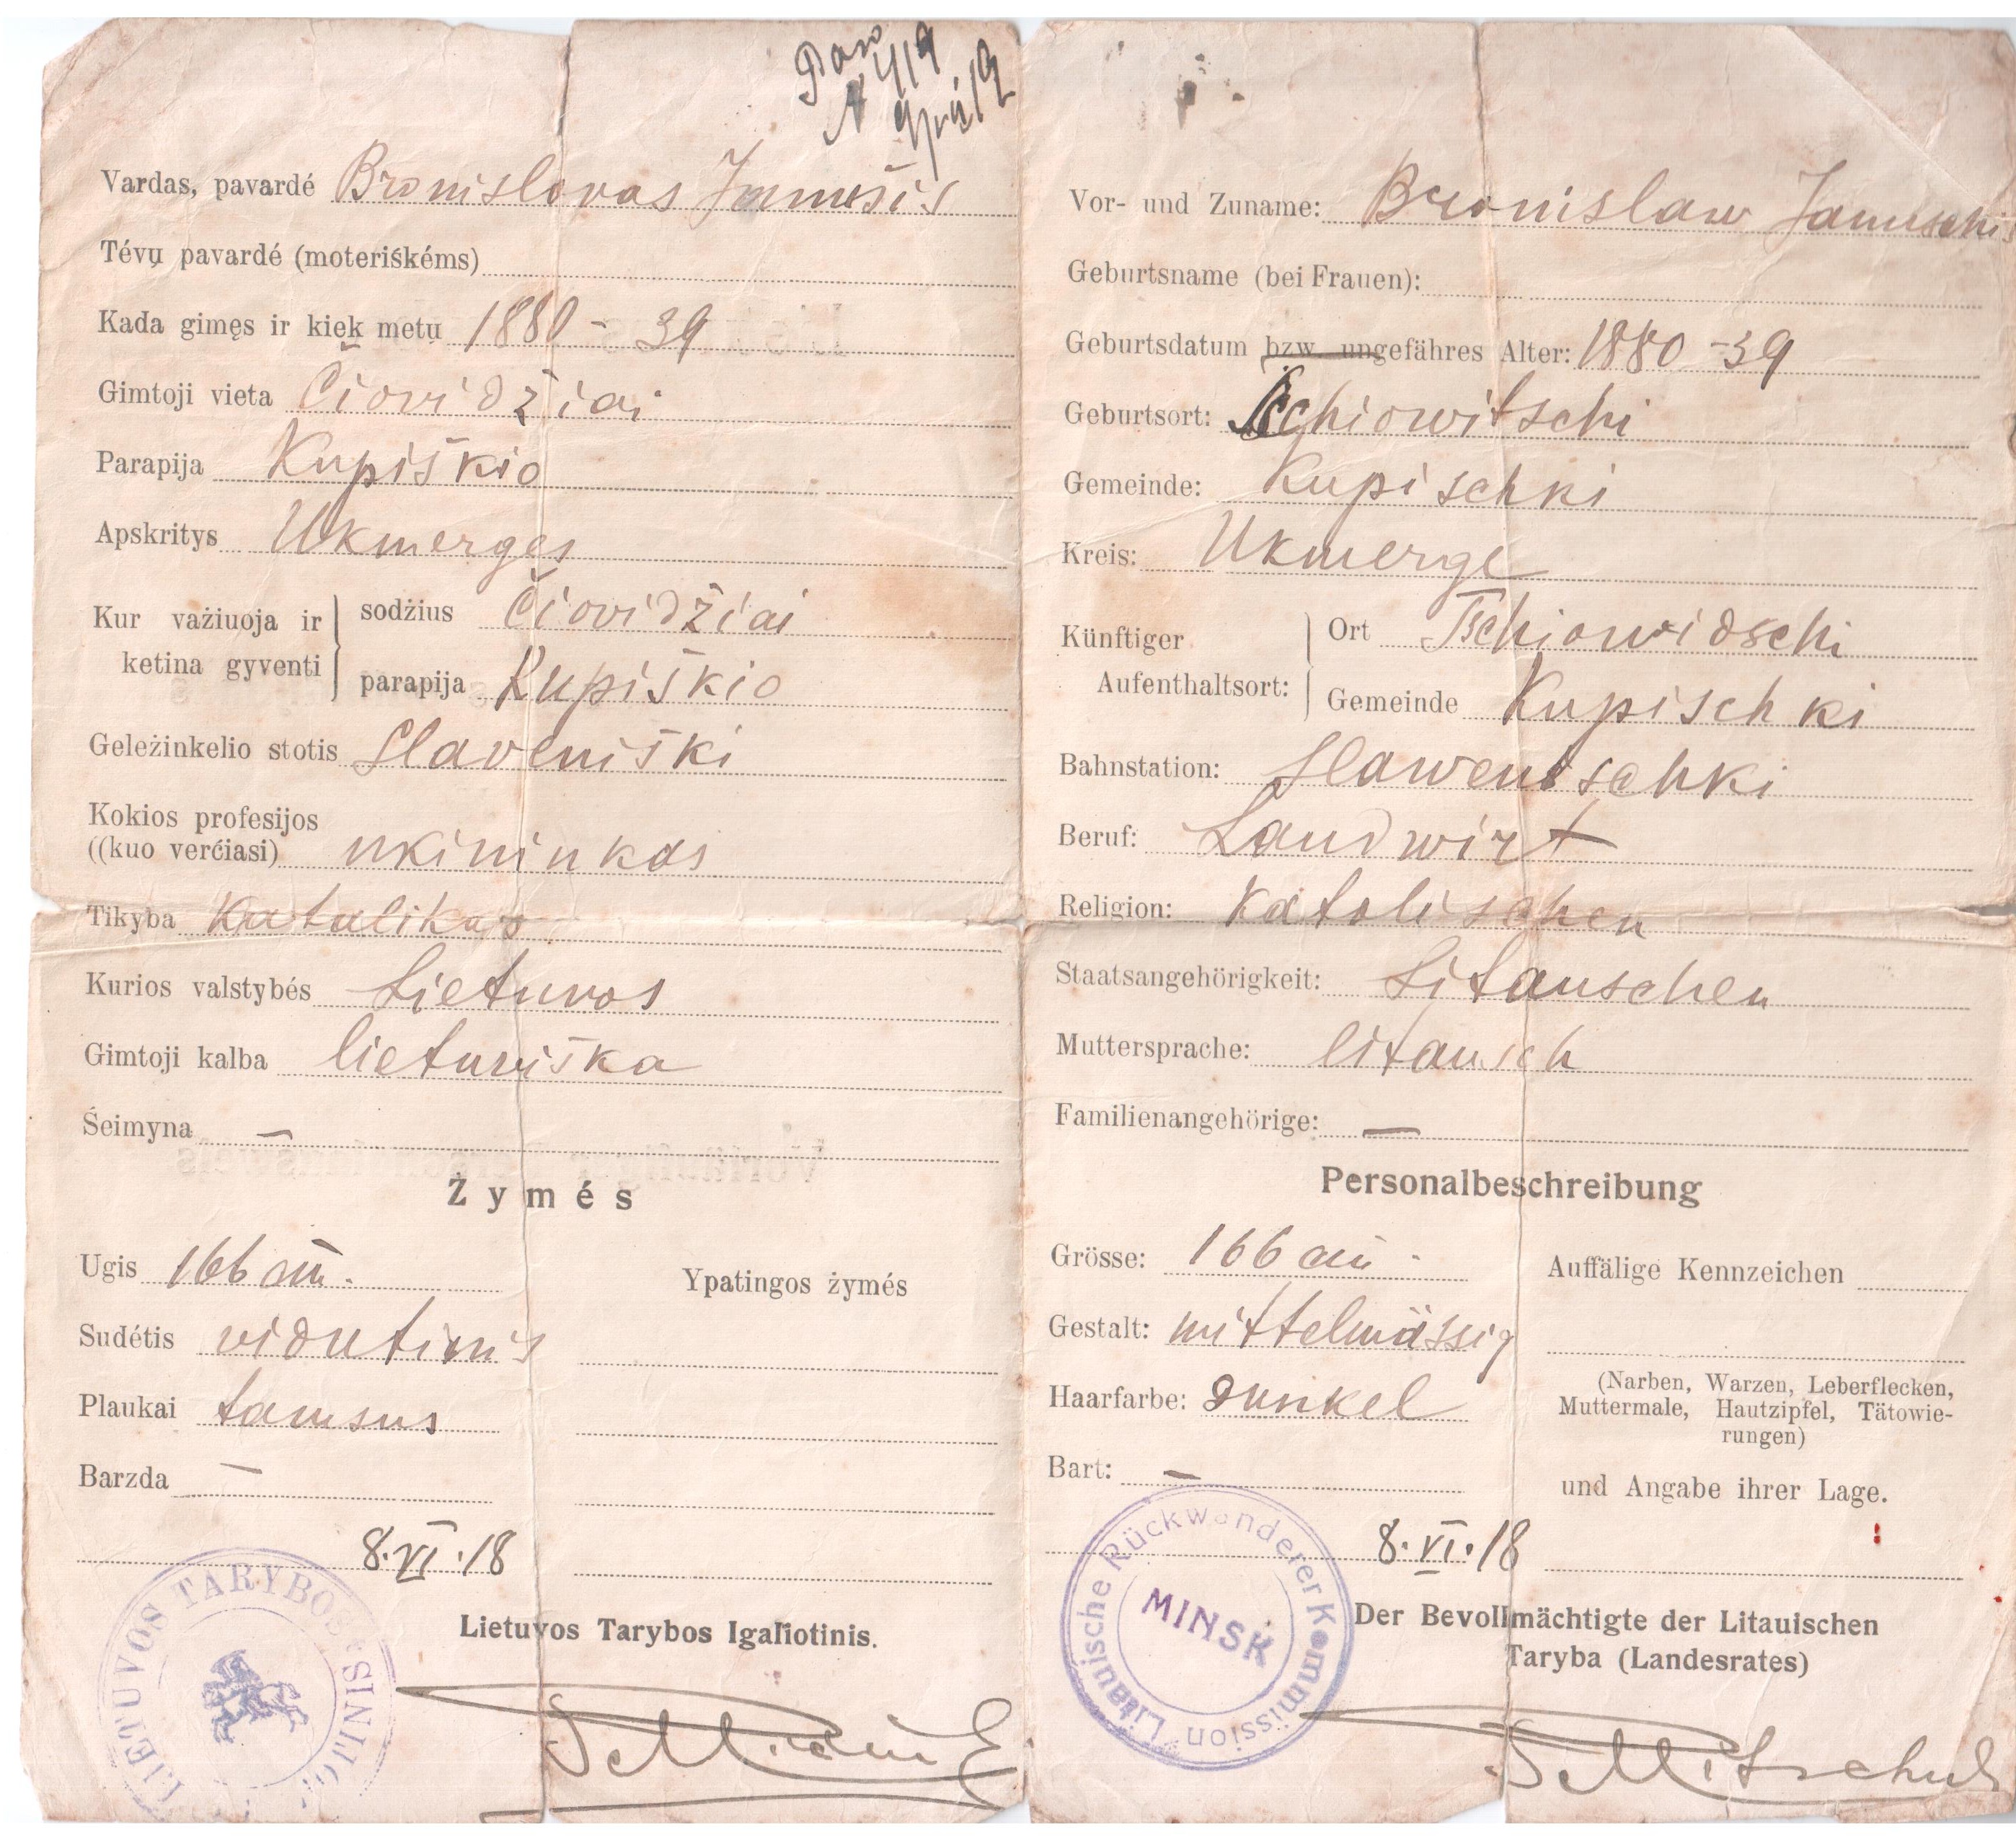 N 419
Vardas, pavardé Bronislovas Janušis
Tévų pavardé (moteriškéms)
Kada gimęs ir kiek metų 1880 - 39
Gimtoji vieta Čiovidžiai
Parapija Kupiškio
Apskritys Ukmerges
Kur važiuoja ir ketina gyventi
sodžius Čiovidžiai
parapija Kupiškio
Geležinkelio stotis Slaveniški
Kokios profesijos
((kuo verćiasi) ukininkas
Tikyba Katalikas
Kurios valstybés Lietuvos
Gimtoji kalba lietuviška
Śeimyna —
Żymés
Ugis 166 cm.
Sudétis vidutinis
Plaukai tamsus
Barzda —
Ypatingos żymés
8.VI.18
LIETUVOS TARYBOS ĮGALIOTINIS
Lietuvos Tarybos Igaliotinis.
Vor- und Zuname: Bronislaw Januschis
Geburtsname (bei Frauen):
Geburtsdatum bzw. ungefähres Alter: 1880 - 39
Geburtsort: Tschiowitschi
Gemeinde: Kupischki
Kreis: Ukmerge
Künftiger Aufenthaltsort:
Ort Tschiowidschi
Gemeinde Kupischki
Bahnstation: Slawenischki
Beruf: Landwirt
Religion: katolischen
Staatsangehörigkeit: Litauschen
Muttersprache: litausch
Familienangehörige: —
Personalbeschreibung
Grösse: 166 cm.
Gestalt: mittelmässig
Haarfarbe: dunkel
Bart: —
Auffälige Kennzeichen
(Narben, Warzen, Leberflecken,
Muttermale, Hautzipfel, Tätowie-
rungen)
und Angabe ihrer Lage.
8.VI.18
Litauische Rückwanderer Kommission
MINSK
Der Bevollmächtigte der Litauischen
Taryba (Landesrates)